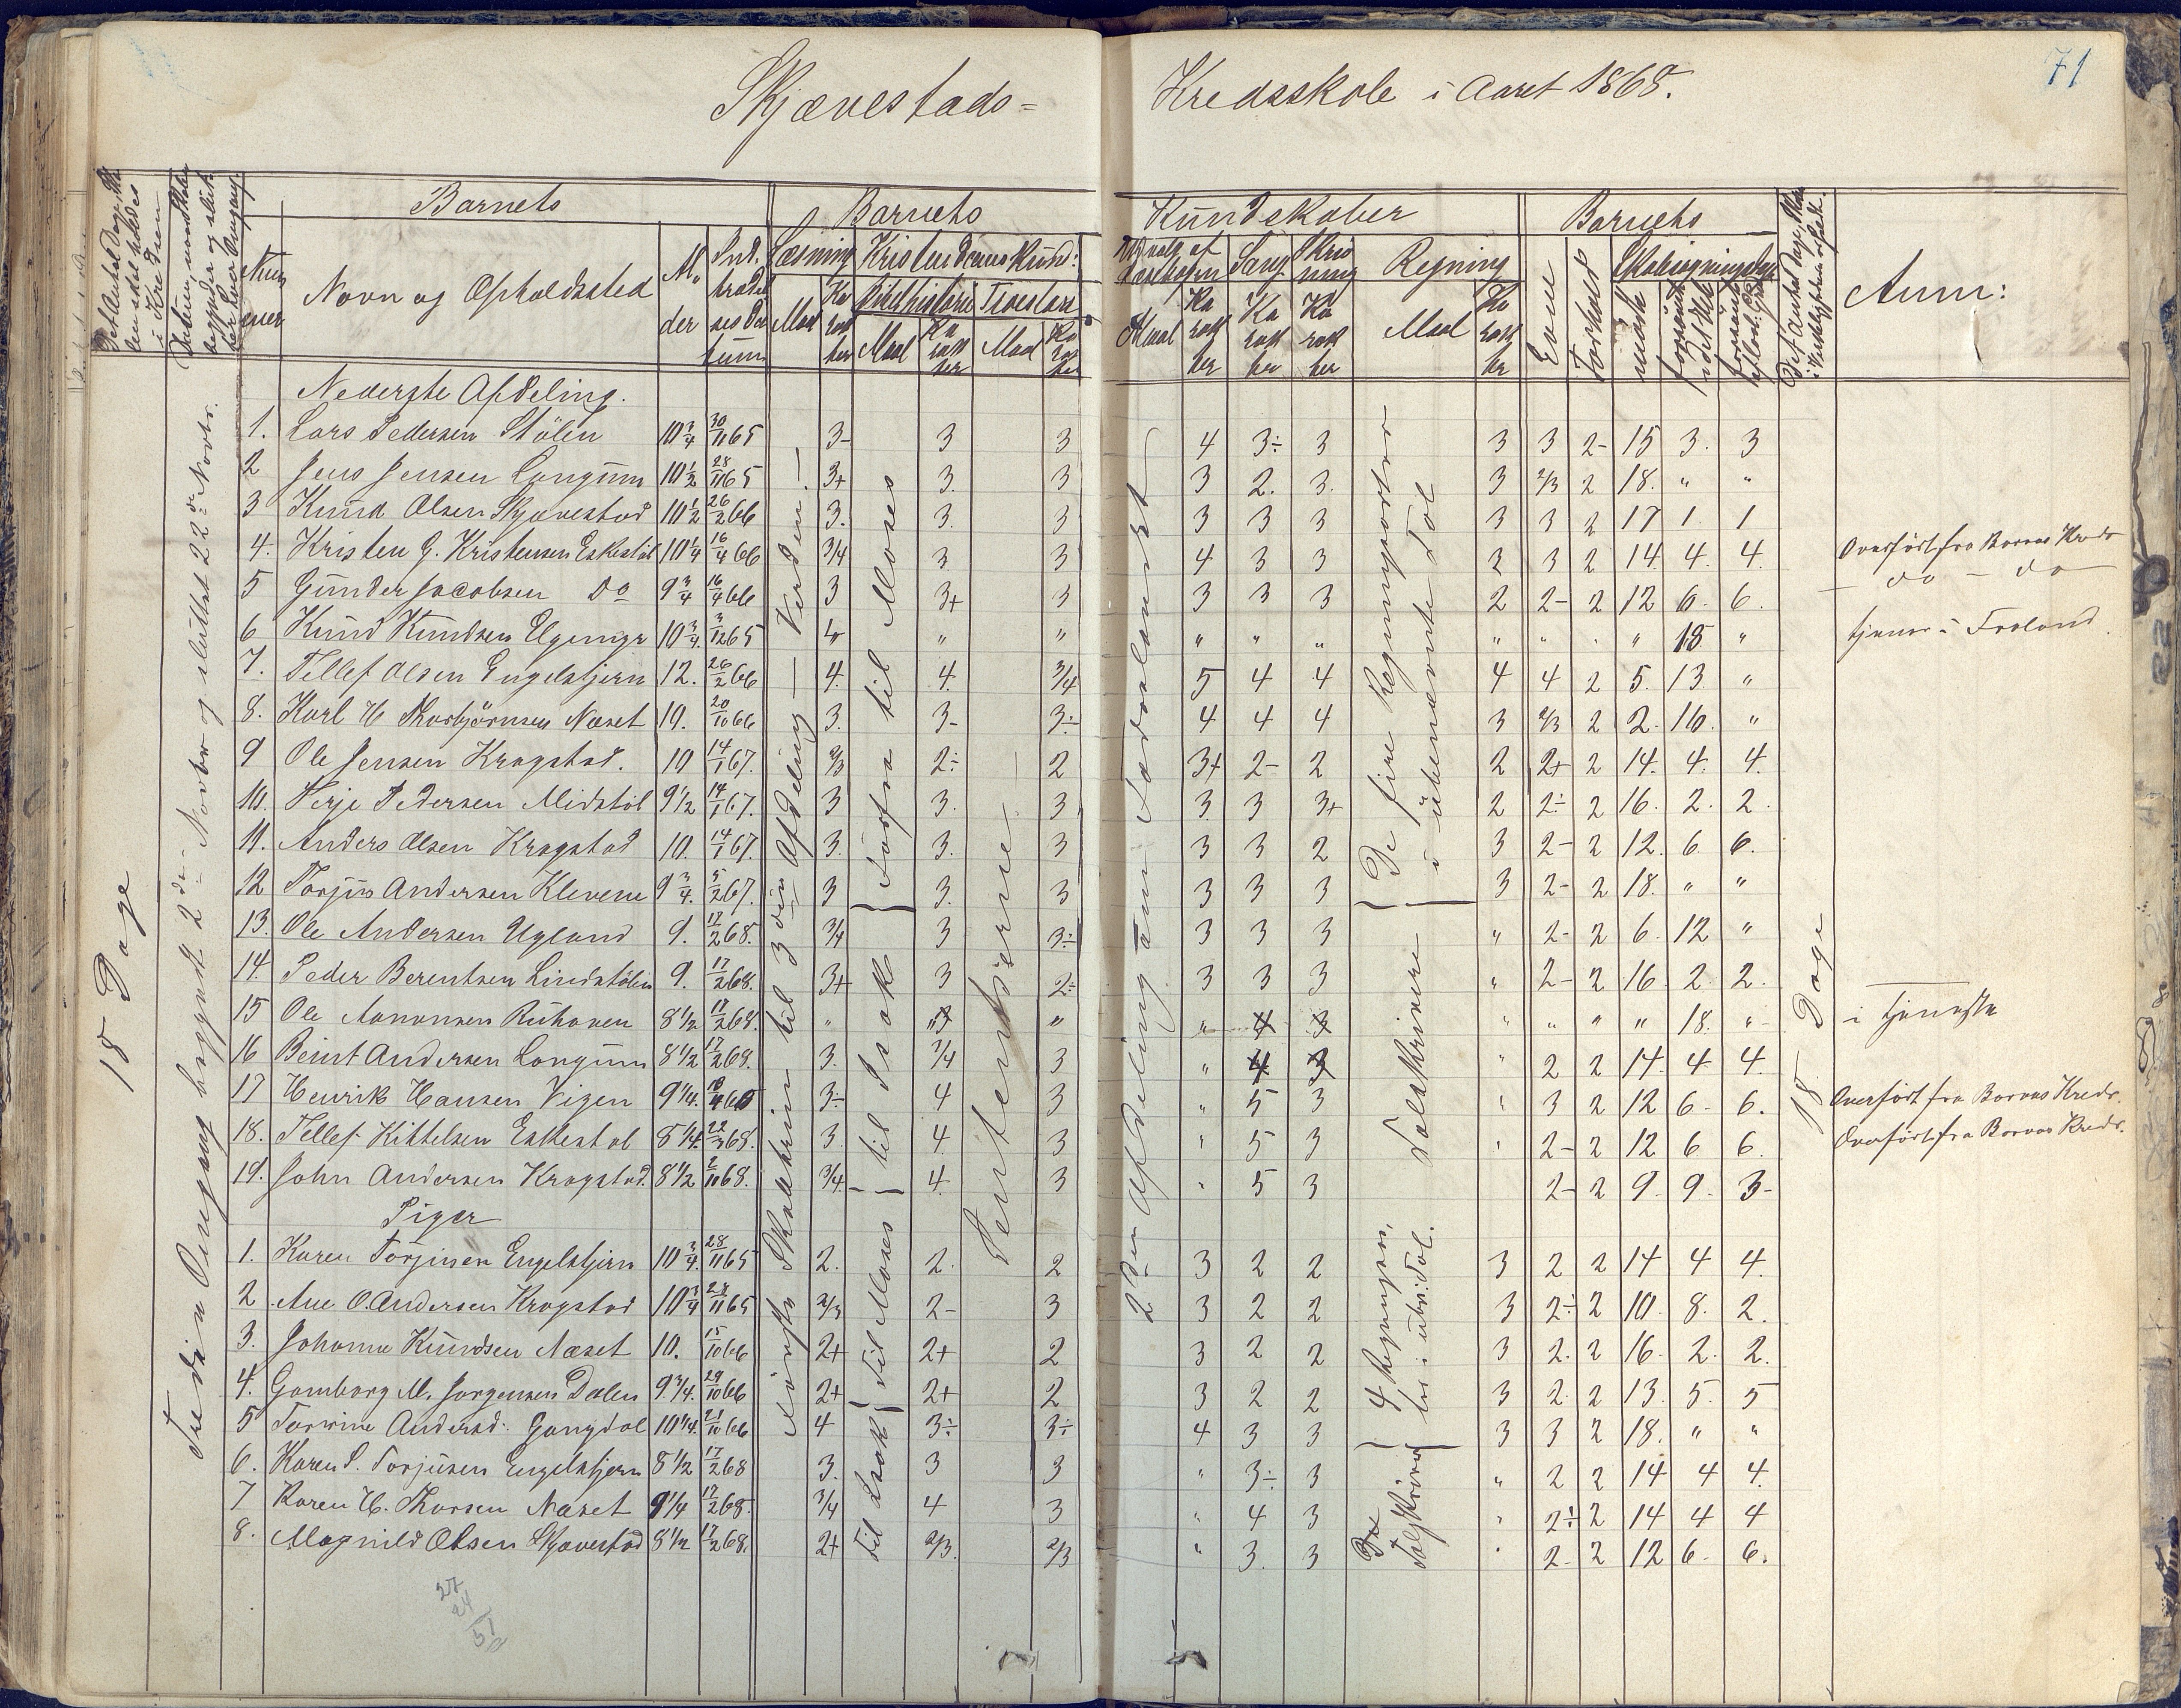 71
Skjævestads=
Kredsskole i Aaret 1868.
Det Antal Dage, Skolen skal holdes i Kredsen
Datum, naar Skolen begynder og slutter hver Omgang.
Barnets
Barnets
Kundskaber
Barnets
Anm:
Nummer
Navn og Opholdssted
Alder
Indtrædelsesdatum
Læsning
Kristendomskund:
Udvalg af Læsebogen
Sang
Skrivning
Regning
Evne
Forhold
Skolesøgningsdage
Maal
Karakter
Bibelhistorie
Troeslære
Maal
Karakter
Maal
Karakter
Maal
Karakter
Karakter
Karakter
Maal
Karakter
mødte
forsømte i det Hele
forsømte af lovl. Grund
Det Antal Dage, Skolen i Virkeligheden er holdt.
18 Dage
Tredie Omgang begyndt 2den Novbr og sluttet 22de Novbr.
Nederste Afdeling.
1. Lars Pedersen Stølen 10 3/4 30/11 65 3- 3 3 4 3÷ 3 3 3 2- 15 3. 3
2 Jens Jensen Longum 10 1/2 28/11 65 3+ 3. 3 3 2. 3. 3 2/3 2 18. " "
3 Knud Olsen Skjævestad 10 1/2 26/2 66 3. 3. 3 3 3 3 3 3 2 17 1. 1
4. Kristen G. Kristensen Eskestøl 10 1/4 16/4 66 3/4 3 3 4 3 3 2 3 2 14. 4. 4. Overført fra Bornes Kreds
5 Gunder Jacobsen Do 9 3/4 16/4 66 3 3+ 3 3 3 3 2 2- 2 12 6. 6. — do — do —
6 Knud Knudsen 10 3/4 3/12 65 " " " " " " " " " 18 " tjener i Froland.
7. Tellef Olsen Engelstjern 12. 26/2 66 4. 4. 3/4 5 4 4 4 4 2 5. 13 "
8. Karl H Thorbjørnsen Næset 10. 20/10 66 3. 3- 3÷ 4 4 4 3 2/3 2 2. 16. "
9 Ole Jensen Krogstad. 10 14/1 67. 2/3 2÷ 2 3+ 2- 2 2 2+ 2 14. 4. 4.
10. Terje Pedersen Midstøl 9 1/2 14/1 67. 3 3. 3 3 3 3+ 2 2÷ 2 16. 2. 2.
11. Anders Olsen Krogstad 10. 14/1 67. 3. 3. 3 3 3 2 3 2- 2 12. 6. 6.
12 Torjus Andersen Klevene 9 3/4. 5/2 67. 3 3. 3 3 3 3 3 2- 2 18. " "
13. Ole Andersen Ugland 9. 17/2 68. 3/4 3 3÷ 3 3 3 " 2- 2 6. 12 "
14. Peder Berentsen Lindstølen 9. 17/2 68. 3+ 3 2÷ 3 3 3 " 2- 2 16. 2. 2.
15 Ole Aanonsen 8 1/2 17/2 68. " " " " " " " " 18. " i tjeneste
16 Beint Andersen Longum 8 1/2 17/2 68. 3. 3/4 3 " 4 3 " 2 2 14. 4 4.
17 Henrik Hansen Vigen 9 1/4. 3÷ 4 3 " 5 3 " 3 2 12 6- 6. Overført fra Bornes Kreds.
18. Tellef Kittelsen Eskestøl 8 1/4. 22/3 68. 3. 4. 3 " 5 3 " 2- 2 12 6 6. Overført fra Bornes Kreds.
19. John Andersen Krogstad. 8 1/2 2/11 68. 3/4 4. 3 " 5 3 2- 2 9. 9. 3-
Piger
1. Karen Torjusen Engelstjern 10 3/4. 28/11 65 2. 2. 2 3 2 2 3 2 2 14 4 4.
2 Ane O. Andersen Krogstad 10 3/4 28/11 65 2/3 2- 3 3 2 2 3 2÷ 2 10. 8. 2.
3. Johanne Knudsen Næset 10. 15/10 66 2+ 2+ 2 3 2 2 3 2. 2 16. 2. 2.
4. Gomborg M. Jørgensen Dalen 9 3/4. 29/10 66 2+ 2+ 2 3 2 2 3 2. 2 13. 5. 5
5 Torine Andersd: Gangdal 10 1/4. 21/10 66 4 3÷ 3÷ 4 3 3 3 3 2 18. " "
6. Karen S. Torjusen Engelstjern 8 1/2 17/2 68 3. 3 3 " 3÷ 3 " 2 2 14 4 4.
7 Karen H. Thorsen Næset 9 1/4 17/2 68. 3/4 4 3 " 4 3 " 2÷ 2 14 4 4
8. Magnild Olsen Skjævestad 8 1/2 17/2 68. 2+ 2/3. 2/3 " 3. 3 " 2- 2 12 6- 6.
første Skoletrin til 3die Afdeling — Verden —
forfra til Moses
til Isak
til Moses
til Isak
Pensterne
2den Afdeling ãnm Fædrelandet
De fire Regningsarter i ubenævnte Tal
Talskrivn
4 Regningsar: ter i ubn: Tal.
Do Talskrivn
18 Dage
27
24
51